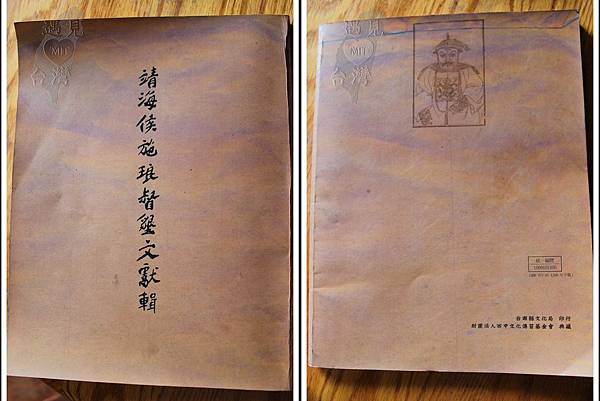 遇見
MIT
台灣
靖海侯施琅督墾文獻輯
遇見
MIT
台灣
統一編號
台南縣文化局 印行
財團法人西甲文化傳習基金會 典藏